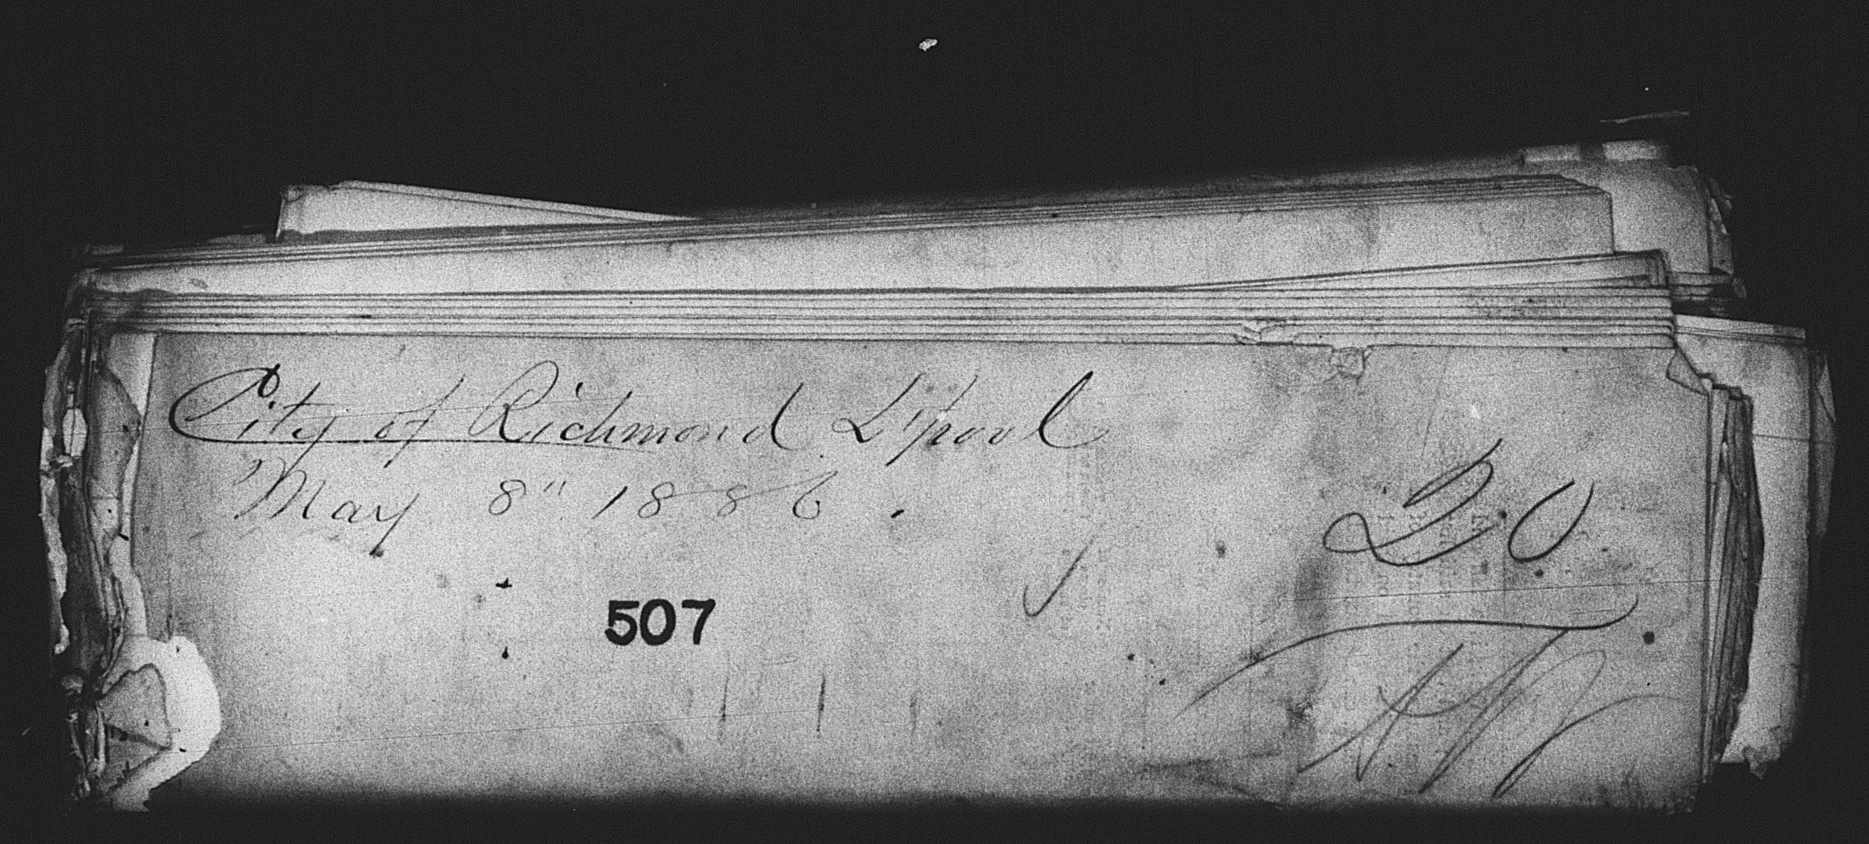 City of Richmond L'pool
May 8" 1886.
20
507